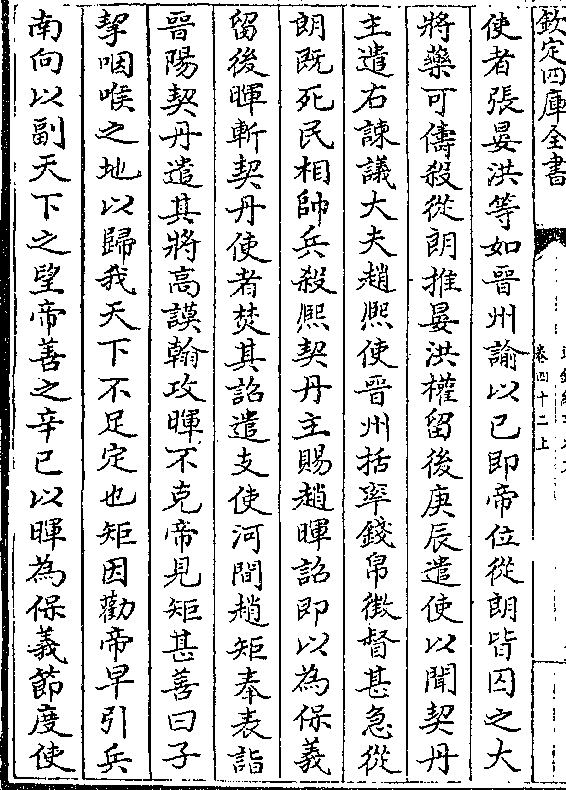 欽定四庫全書
卷四十二上
使者張晏洪等如晉州諭以已即帝位從朗皆囚之大
將藥可儔殺從朗推晏洪權留後庚辰遣使以聞契丹
主遣右諫議大夫趙熈使晉州括率錢帛徵督甚急從
朗既死民相帥兵殺熈契丹主賜趙暉詔即以為保義
留後暉斬契丹使者焚其詔遣支使河間趙矩奉表詣
晉陽契丹遣其將高謨翰攻暉不克帝見矩甚喜曰子
挈咽喉之地以歸我天下不足定也矩因勸帝早引兵
南向以副天下之望帝善之辛巳以暉為保義節度使